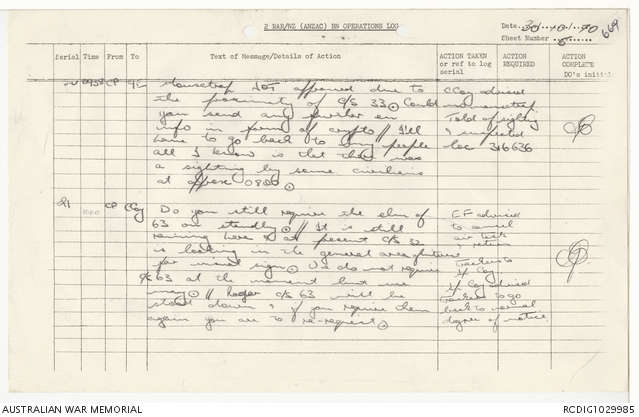 2 RAR/NZ (ANZAC) BN OPERATIONS LOG
Date: 30-01-70
Sheet Number 5
669
Serial Time From To Text of Message/Details of Action ACTION TAKEN or ref to log serial ACTION REQUIRED ACTION COMPLETE DO's initial
CP Mousetrap NOT approved due to
the proximity of C/S 33. Could
you send any further en
info in form of crypto // I'll
have to go back to my people
all I know is that there was
a sighting by some civilians
at approx 0800.
CCoy advised
Told of sighting
loc 316636
21 CP CCoy Do you still require the elm of
63 on standby // It is still
raining here & at present C/S 32
is looking in the general area
for sign. We do not require
C/S 63 at the moment but we
may // Roger C/S 63 will be
stood down & if you require them
again you are to re-request.
EF advised
to cancel
Coy advised
to go
back to normal
degree of notice
AUSTRALIAN WAR MEMORIAL
RCDIG1029985